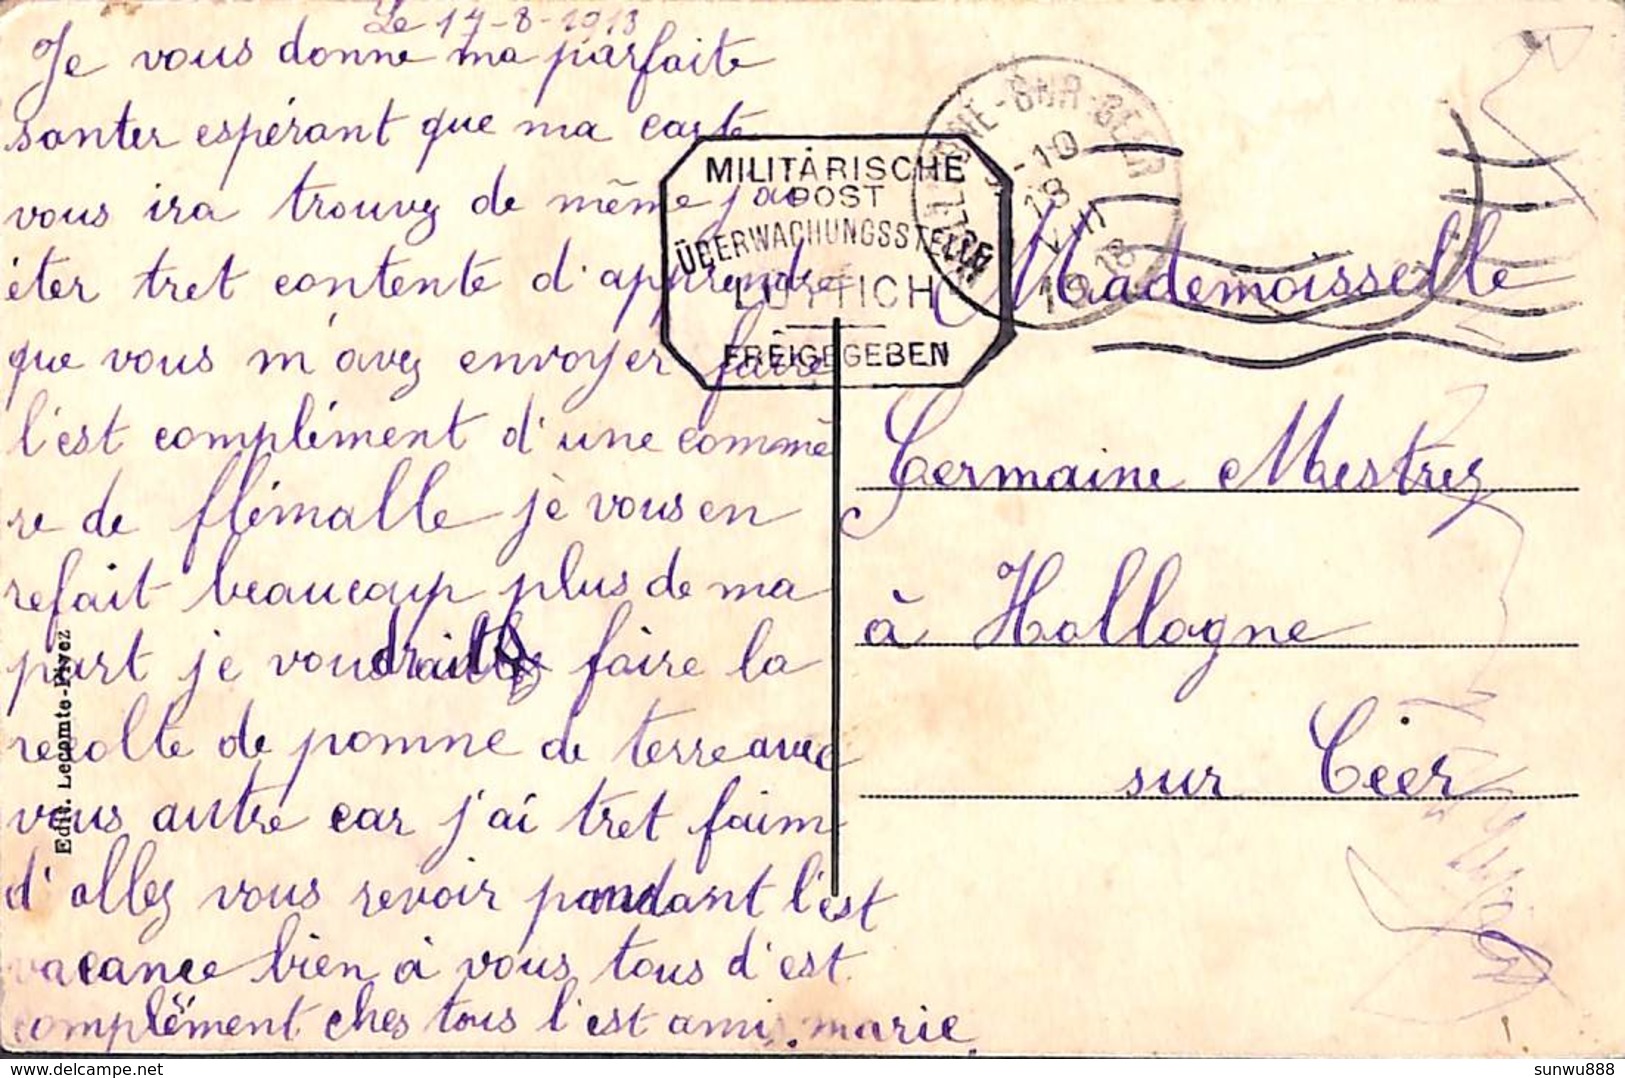 Le 17-8-1918
Je vous donne ma parfaite
santer espérant que ma carte
vous ira trouvez de même j'ai
éter tret contente d'apprendre
que vous m'avez envoyer faire
l'est complément d'une commè
re de flémalle je vous en
refait beaucoup plus de ma
part je voudrait faire la
recolte de pomme de terre avec
vous autre car j'ai tret faim
d'allez vous revoir pandant l'est
vacance bien à vous tous d'est
complément ches tous l'est ami. marie.
Edit. Lecomte-Frvez
MILITÄRISCHE
POST
ÜBERWACHUNGSSTELLE
LÜTTICH
FREIGEGEBEN
-10
18
VIII
1918
Mademoisselle
Germaine Mestrez
à Hollogne
sur Geer
sunwu888